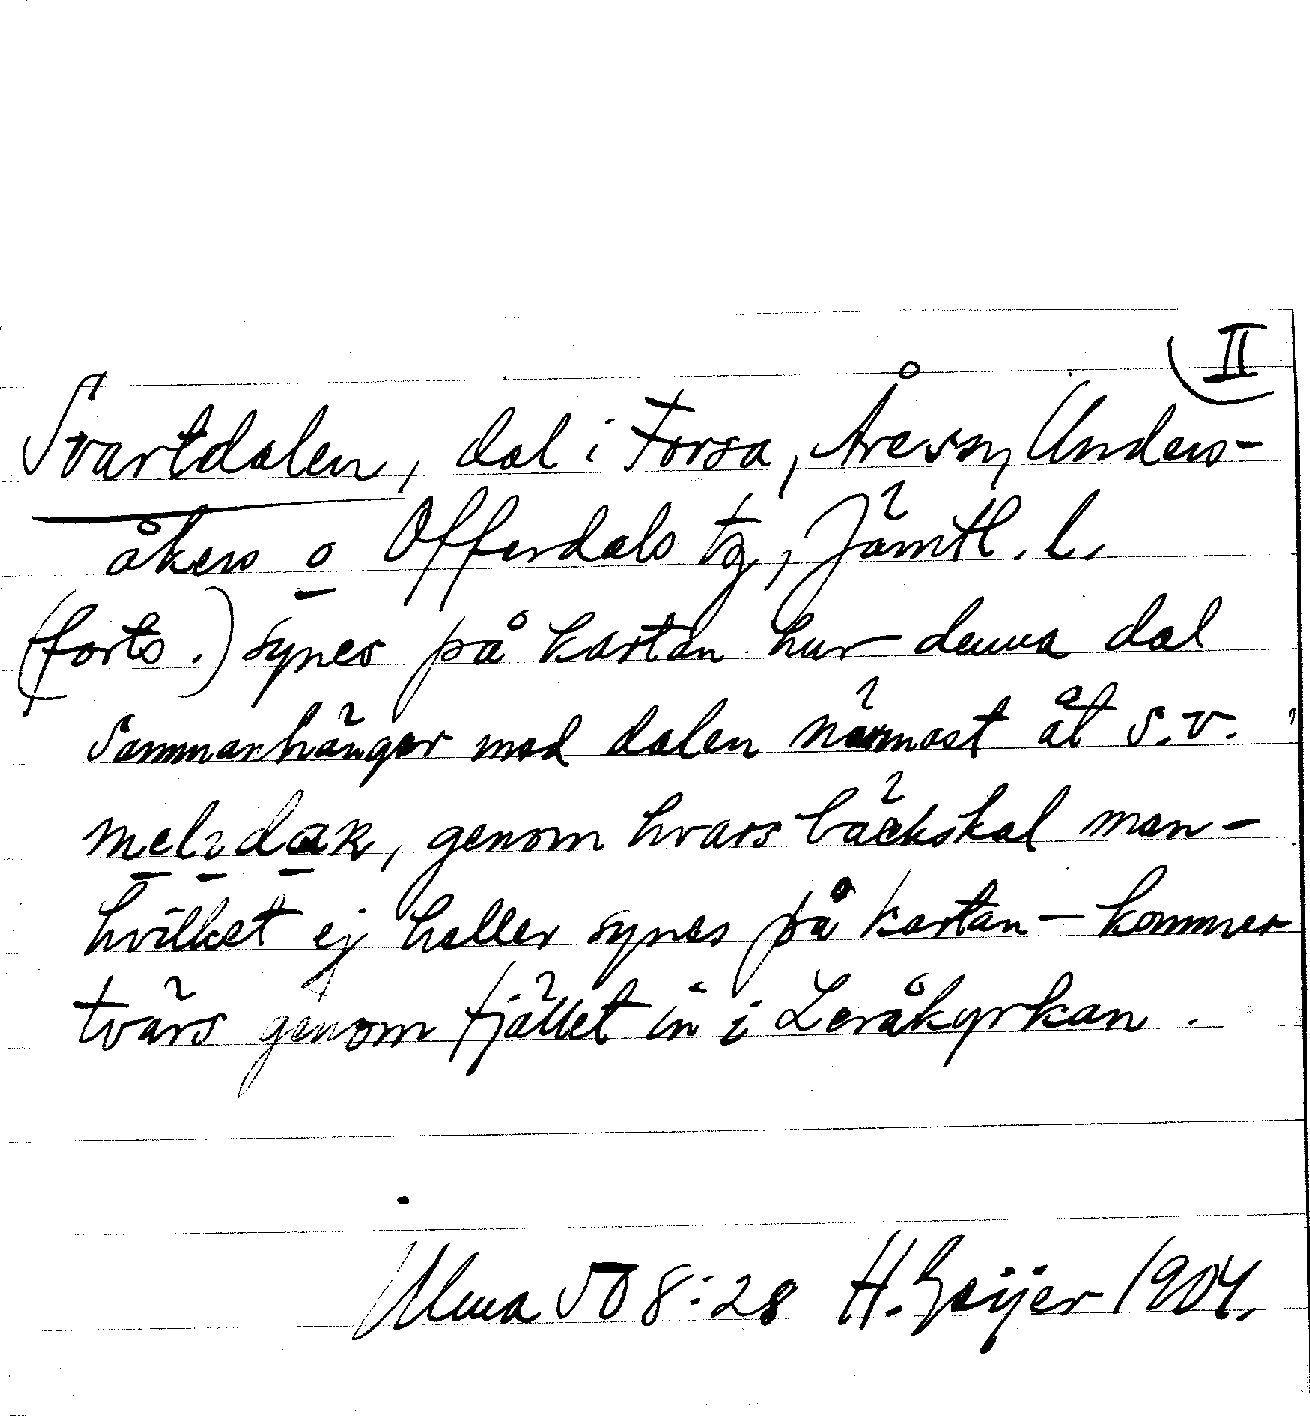 II
Svartdalen, dal i Forsa, Åresn, Unders-
åkers o Offerdals tg, Jämtl. l.
(forts.) synes på kartan hur denna dal
sammanhänger med dalen närmast åt S.V.
genom hvars bäckskal man -
hvilket ej heller synes på kartan - kommer
tvärs genom fjället in i Leråkyrkan.
Ulma 508:28 H. Geijer 1904.